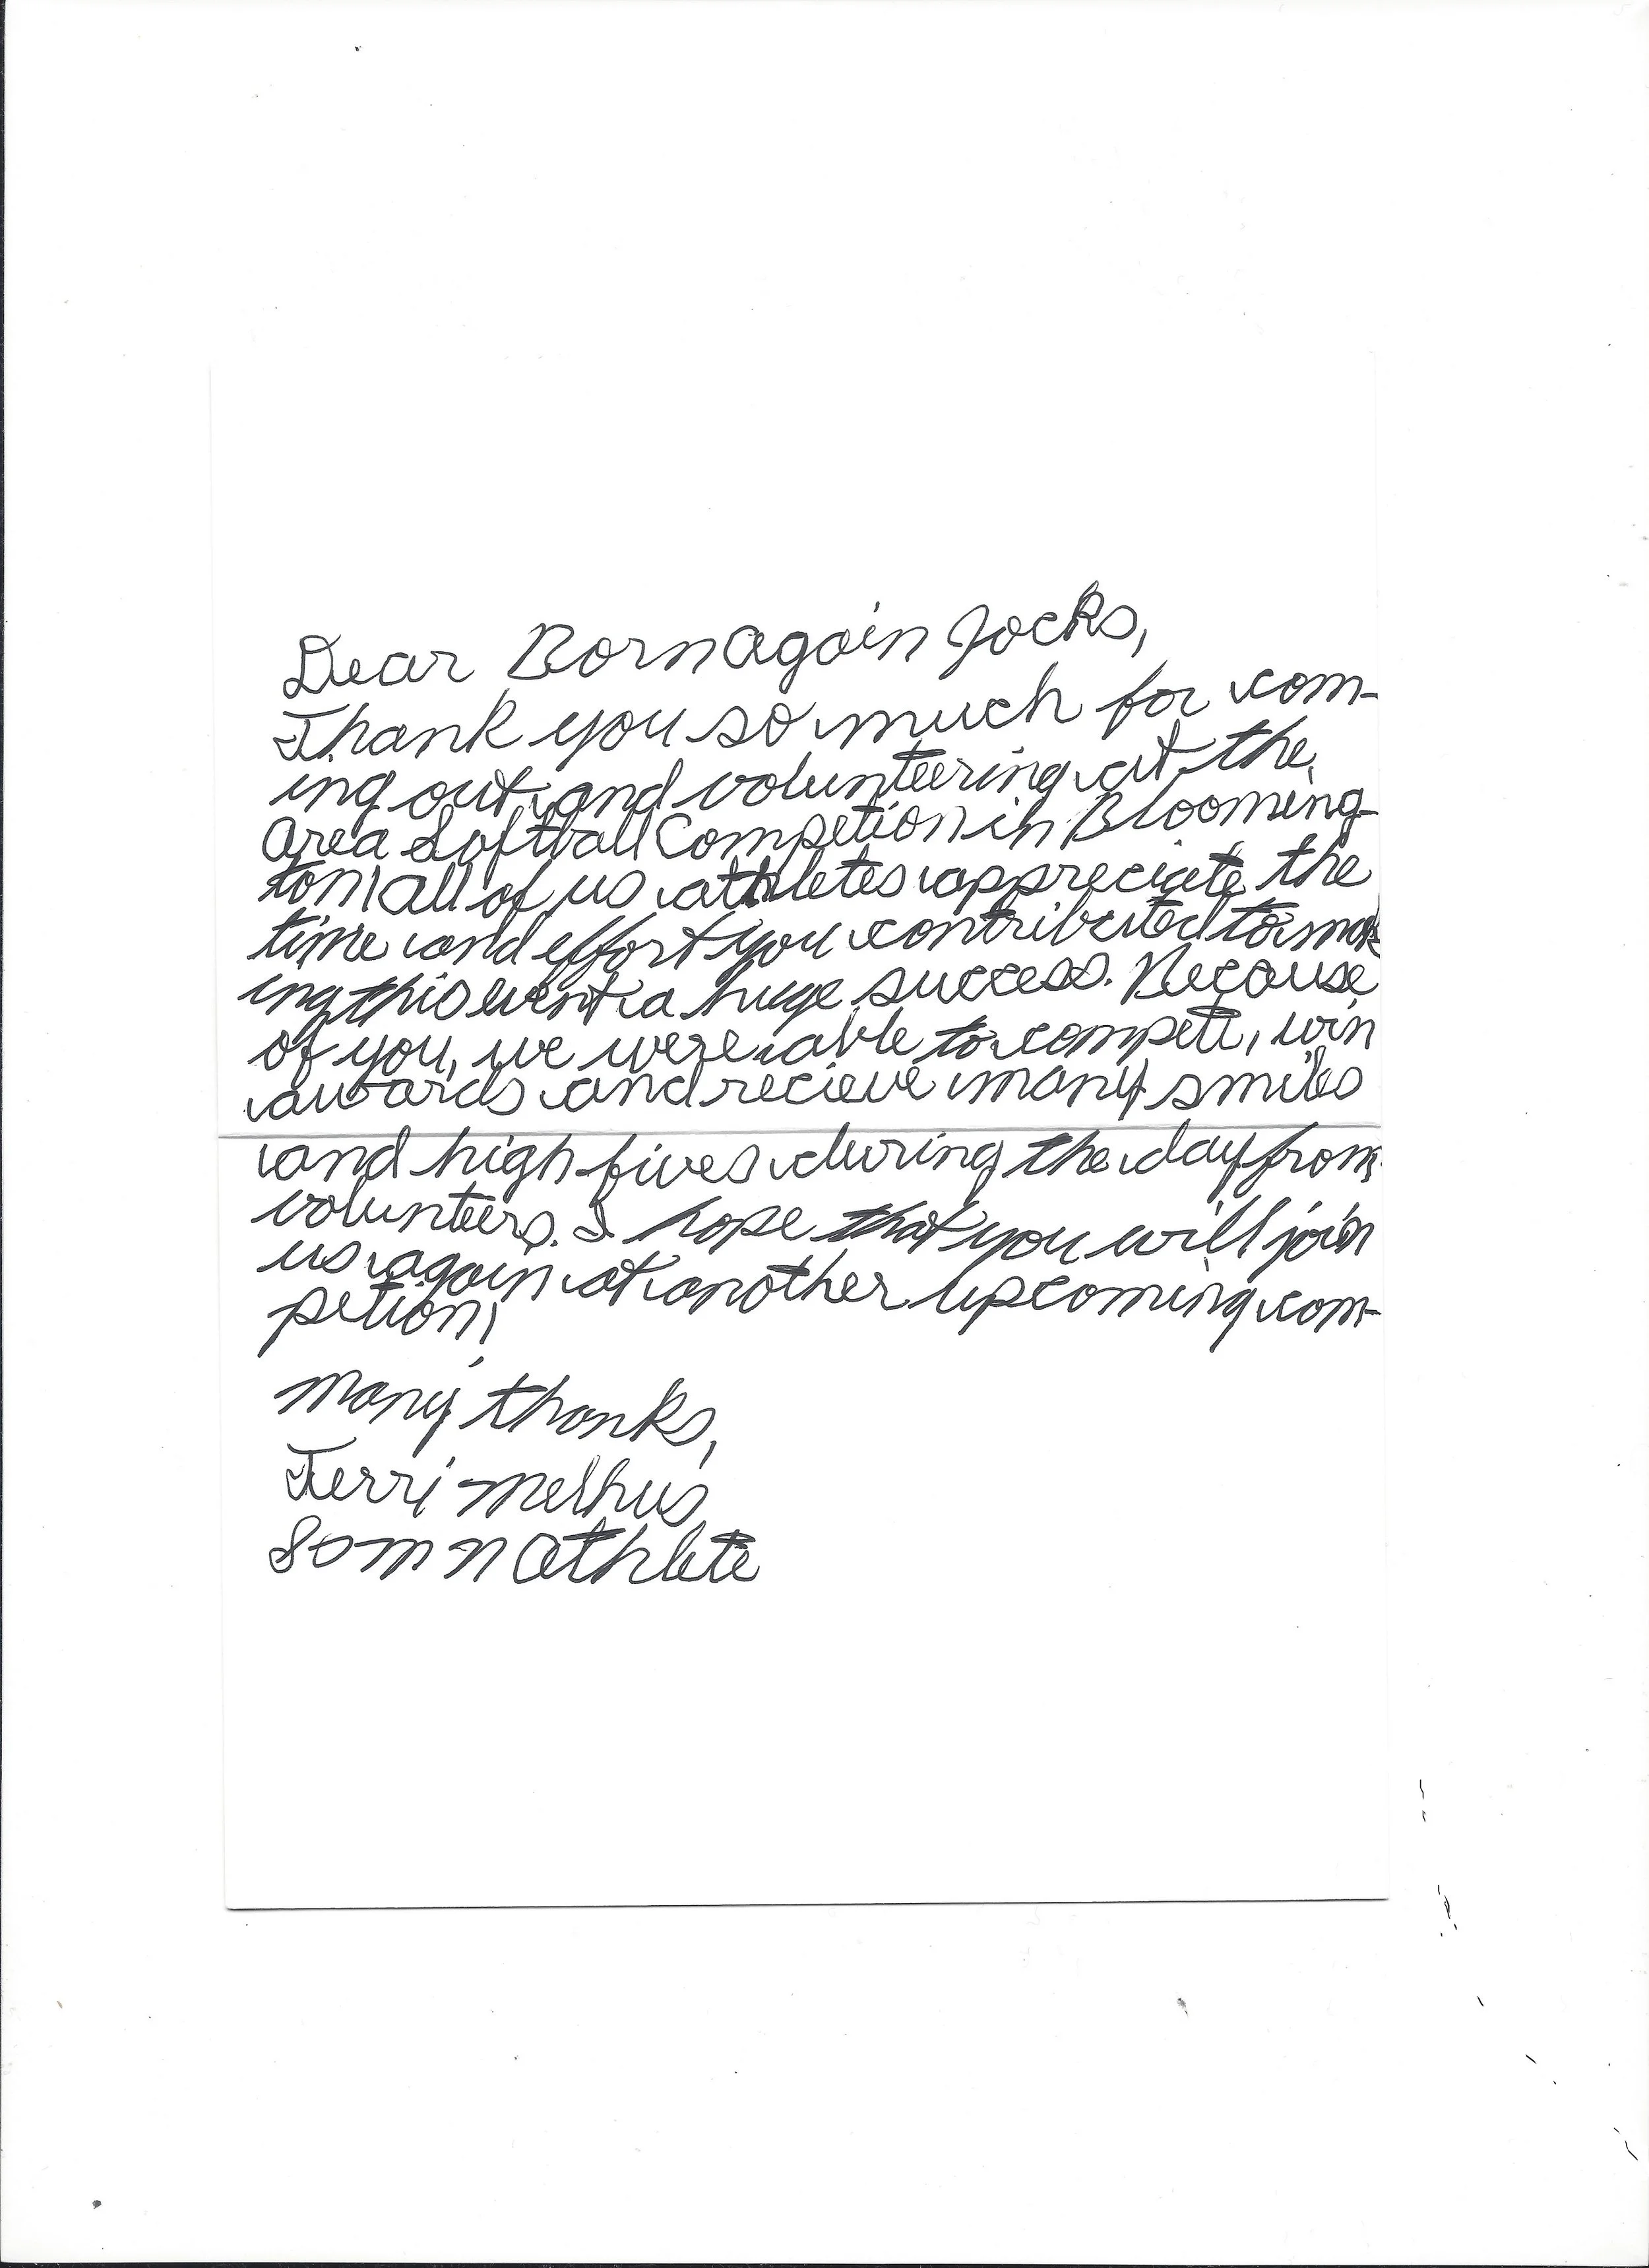 Dear Born Again Jocks,
Thank you so much for com-
ing out and volunteering at the
Area Softball Competion in Blooming-
ton! All of us athletes appreciate the
time and effort you contributed to mak-
ing this event a huge success. Because
of you, we were able to compete, win
awards and recieve many smiles
and high-fives during the day from
volunteers. I hope that you will join
us again at another upcoming com-
petion!
Many thanks,
Terri Melhus
SOMN Athlete